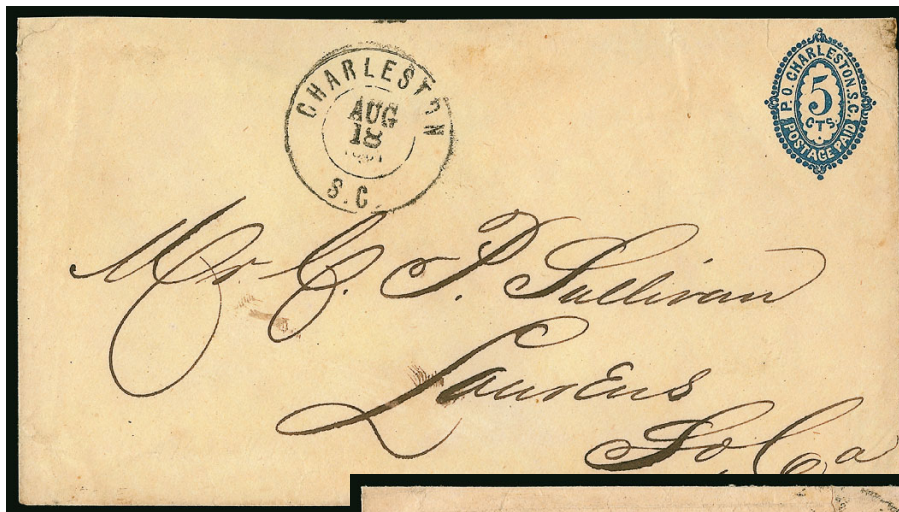 CHARLESTON
AUG
18
S.C.
P.O. CHARLESTON. S.C.
5
CTS.
POSTAGE PAID
Mr. C. P. Sullivan
Laurens
So, Ca